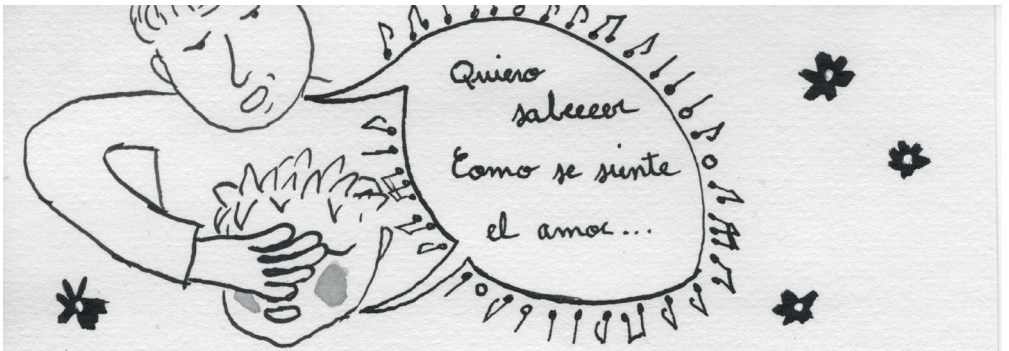 Quiero
sabeeeer
Como se siente
el amor...